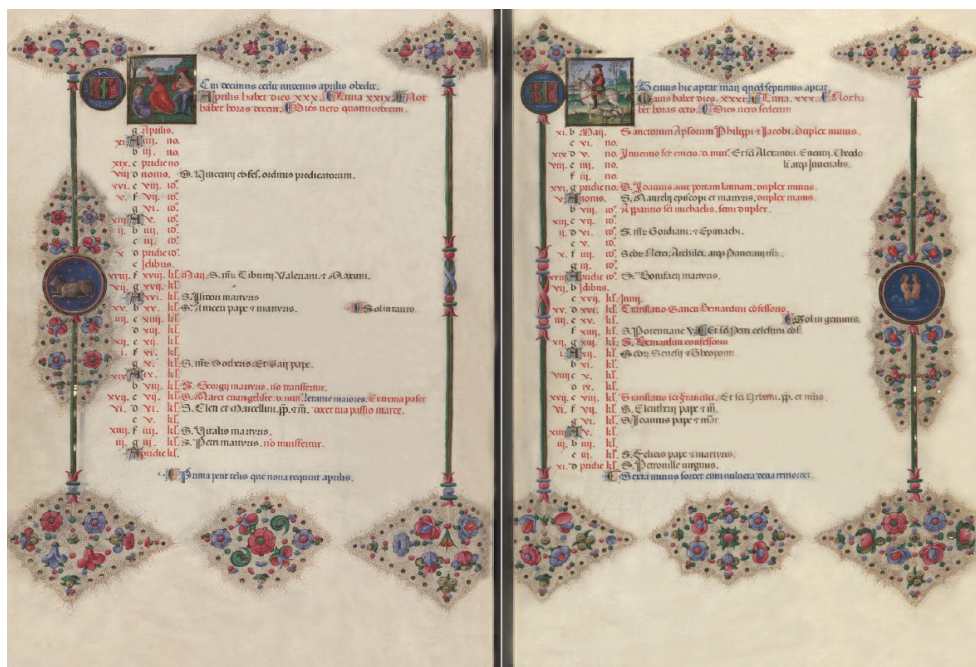 KL
aprilis habet dies xxx. Luna xxix. Nox
habet horas decem. Dies vero quattuordecim.
g Aprilis.
xi. A iiii. no.
b iii. no.
xix. c pridie no
viii d nonis. S. Vincentii cōfes. ordinis predicatorum.
xvi. e viii. id9.
v. f vii. id9.
g vi. id9.
xiii. A v. id9.
ii. b iiii. id9.
c iii. id9.
x. d pridie id9.
e Idibus.
xviii. f xviii. kl. Maii. S. mr. Tiburtii Valeriani & Maximi.
vii. g xvii. kl.
A xvi. kl. S. martyris
xv. b xv. kl. S. Aniceti pape & martyris. Sol in tauro.
iiii. c xiiii. kl.
d xiii. kl.
xii. e xii. kl.
i. f xi. kl.
g x. kl. S. mr. Sotheris. Et Gaii pape.
ix. A ix. kl.
b viii. kl. S. Georgii martyris. no transfertur.
xvii. c vii. kl. S. Marci evangeliste. d. mai9. letanie maiores.
vi. d vi. kl. S. Cleti et Marcellini. pp. & m.
e v. kl.
xiiii. f iiii. kl. S. Vitalis martyris.
iii. g iii. kl. S. Petri martyris. no transfertur.
A pridie kl.
Prima perit telis que nona requirit aprilis.
KL
Maius habet dies. xxxi. Luna. xxx. Nox ha
bet horas octo. Dies vero sedecim
xi. b Maii. Sanctorum Apſorum Philippi & Jacobi. duplex minus.
c vi. no.
xix d v. no. Inventio scē crucis. d. min9. Et scī Alexandri. Eventii. Theodo
viii e iiii. no. li. atqꝫ Juvenalis.
f iii. no.
xvi. g pridie no. S. Joannis ante portam latinam. duplex minus.
v. A nonis. S. Maurelii episcopi et martyris. duplex maius.
b viii. id9. Apparitio sci michaelis. semiduplex.
xiii c vii. id9.
ii. d vi. id9. S. mr. Gordiani: & Epimachi.
e v. id9.
x. f iiii. id9. Scōr Nerei. Archilei. atqꝫ Pancratii mr.
g iii. id9.
xviii A pridie id9. S. Bonifacii martyris.
vii. b Idibus.
c xvii. kl. Junii.
xv. d xvi. kl. Translatio Sancti Bernardini cōfessoris.
iiii. e xv. kl. Sol in geminis.
f xiiii. kl. S. Potentiane V. Et scī Petri celestini cōf.
xii. g xiii. kl. S. Bernardini confessoris
i. A xii. kl.
b xi. kl.
viiii c x. kl.
d ix. kl.
xvii. e viii. kl. Translatio sci francisci. Et scī Urbani. pp. et m̄is.
vi. f vii. kl. S. Eleutherii pape & m̄.
g vi. kl. S. Joannis pape & m̄ir.
xiiii A v. kl.
iii. b iiii. kl.
c iii. kl. S. Felicis pape & martyris.
xi. d pridie kl. S. Petronille virginis.